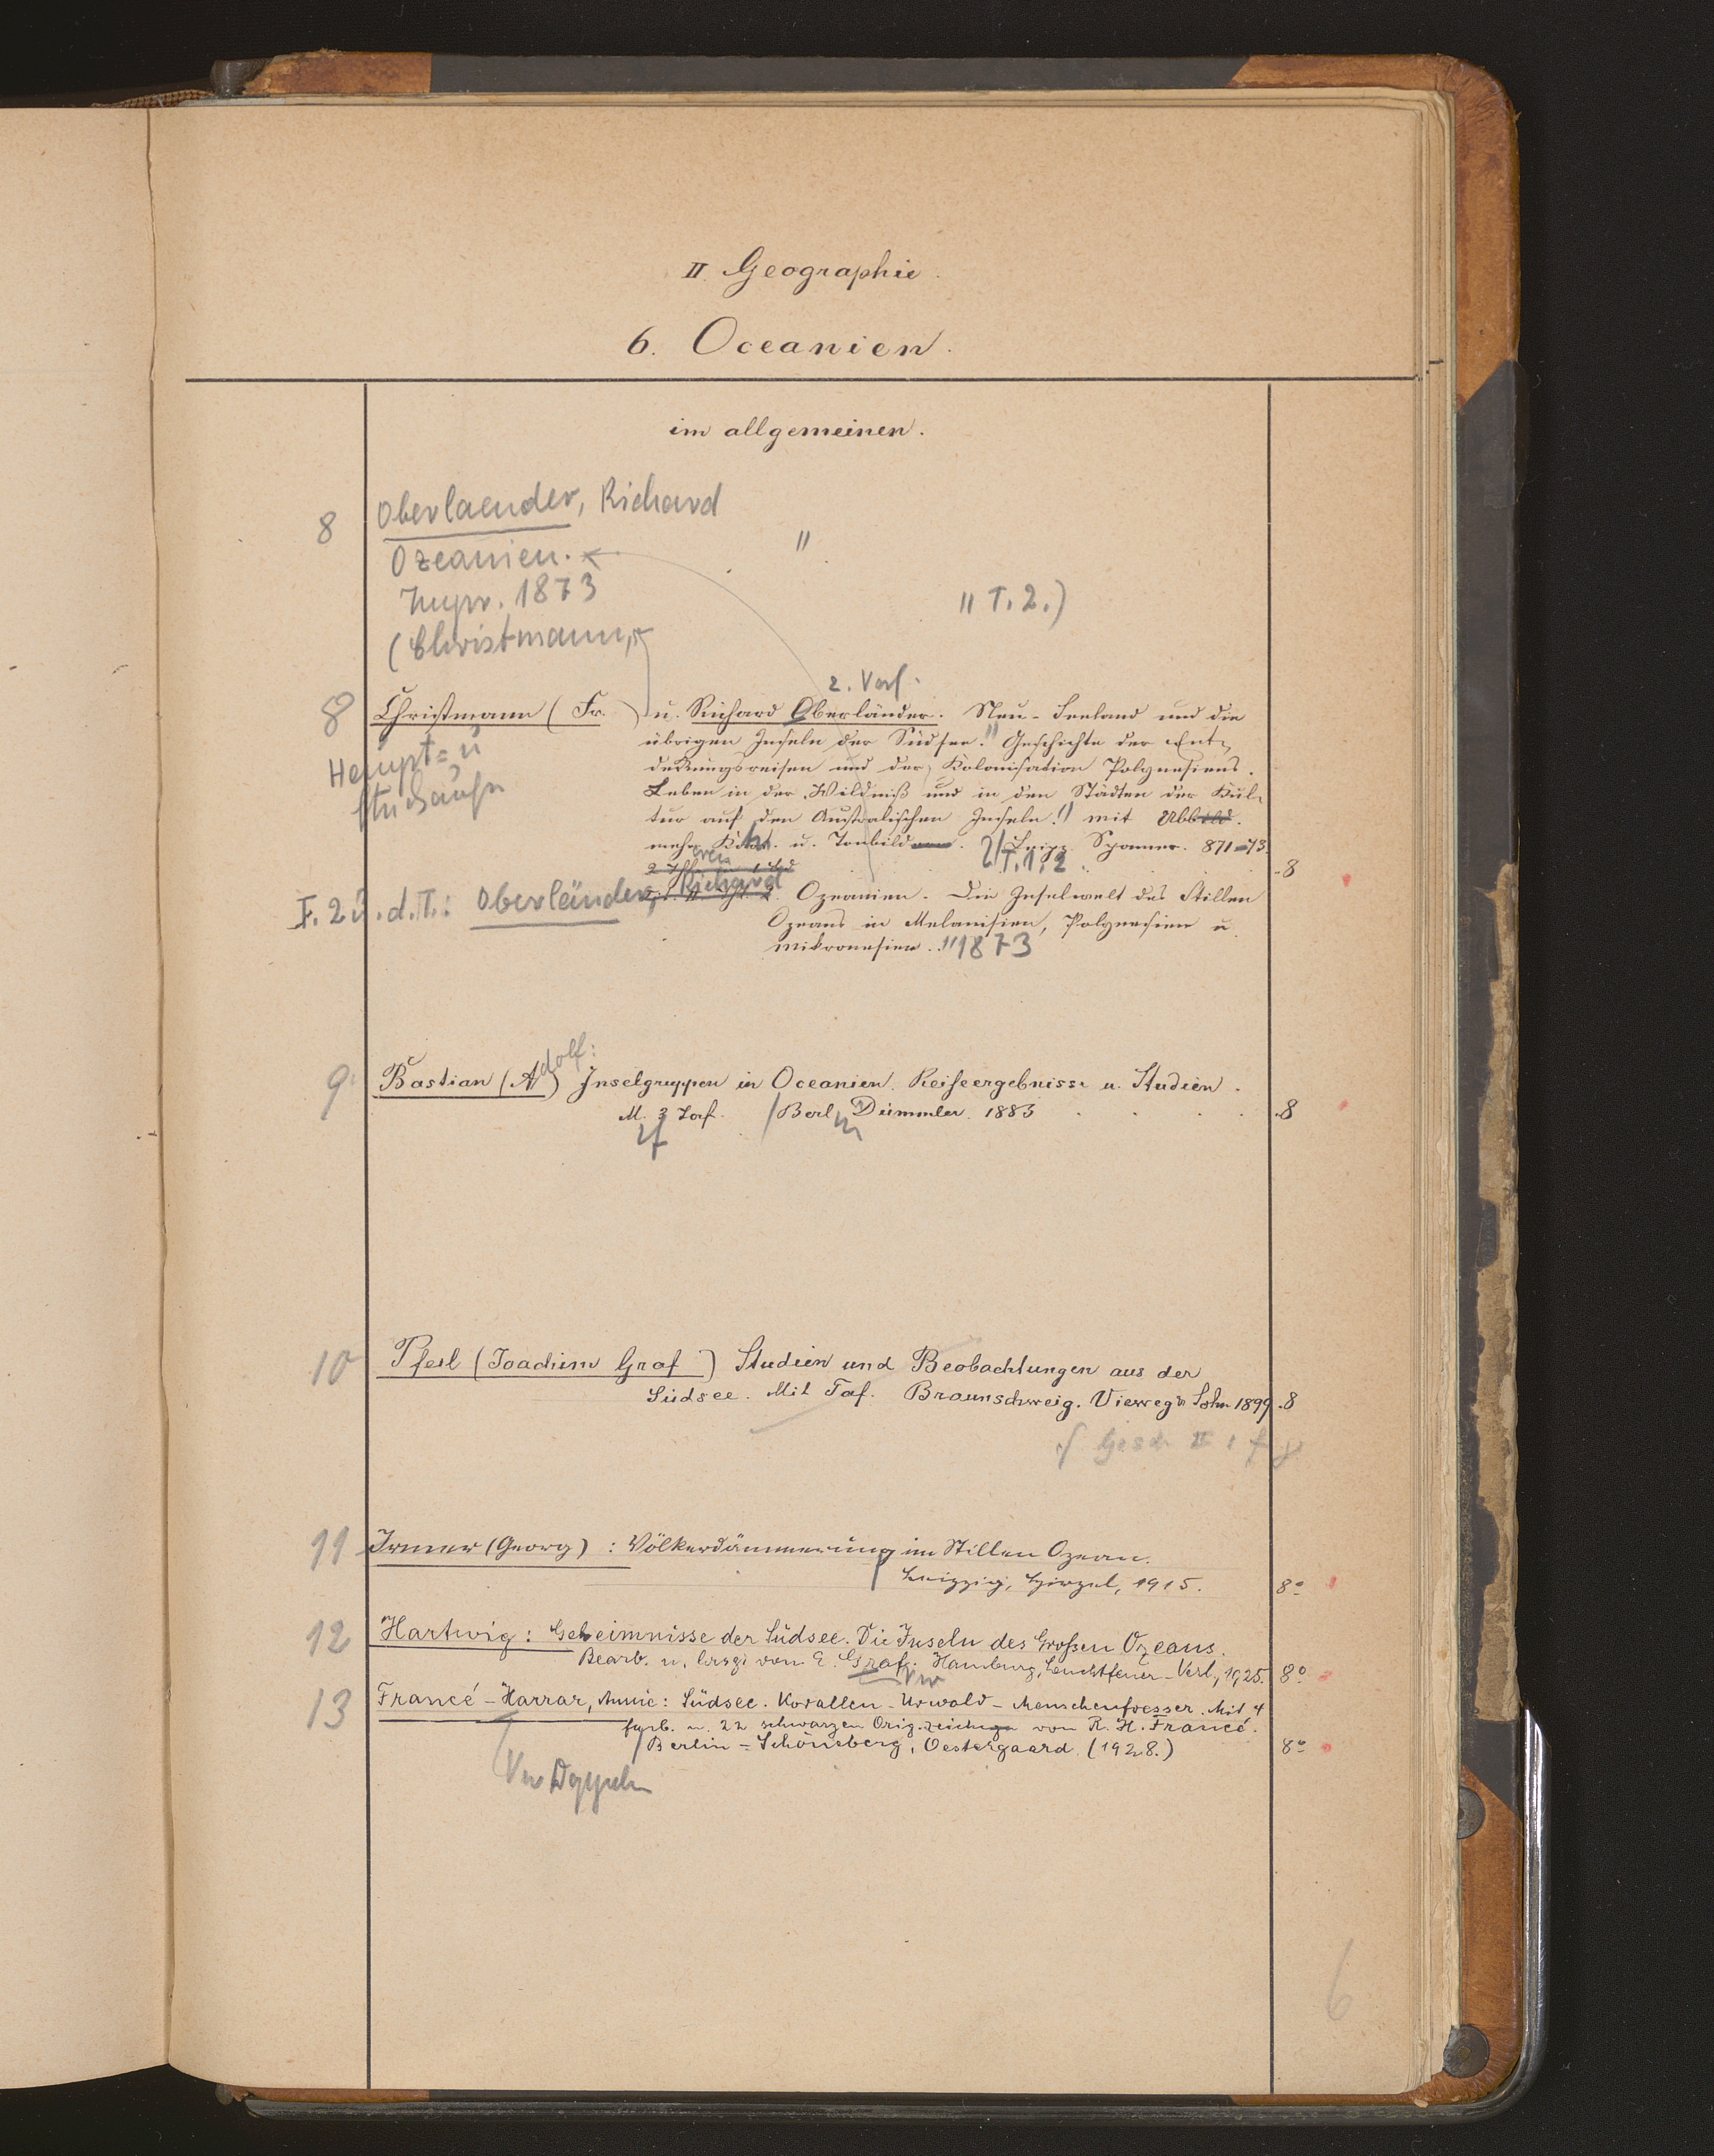 II. Geographie.
6. Oceanien.
im allgemeinen.
8 Oberlaender, Richard
Ozeanien. "
1873 " T. 2.)
(Christmann,
2. Verf.
8 Christmann (Fr. ) u. Richard Oberländer. Neu-Seeland und die
übrigen Inseln der Südsee." Geschichte der Ent-
Haupt= u
deckungsreisen und der Kolonisation Polynesiens.
Leben in der Wildniß und in den Städten der Kul-
tur auf den Australischen Inseln." mit Abbild.
mehr. Kart. u. Tonbild. Leipz. Spamer. 871-73.
T. 1. 2 8
F. 2 u. d. T.: Oberländer, Richard Ozeanien. Die Inselwelt des Stillen
Ozeans in Melanisien, Polynesien u.
Mikronesien." 1873
9 Bastian (Adolf:) Inselgruppen in Oceanien. Reiseergebnisse u. Studien.
M. 3 Taf. / Berlin Dümmler. 1883 8
10 Pfeil (Joachim Graf ) Studien und Beobachtungen aus der
Südsee. Mit Taf. Braunschweig. Vieweg u Sohn 1899. 8
11 Irmer (Georg) : Völkerdämmerung im Stillen Ozean.
Leipzig, Hirzel, 1915. 8°
12 Hartwig: Geheimnisse der Südsee. Die Inseln des Großen Ozeans.
Bearb. u. hrsg. von E. Graf. Hamburg, Leuchtfeuer-Verl., 1925. 8°
Vw
13 Francé-Harrar, Annie: Südsee. Korallen-Urwald-Menschenfresser. Mit 4
farb. u. 22 schwarzen Orig.zeichngn von R. H. Francé.
/ Berlin=Schöneberg, Oestergaard (1928.) 8°
6